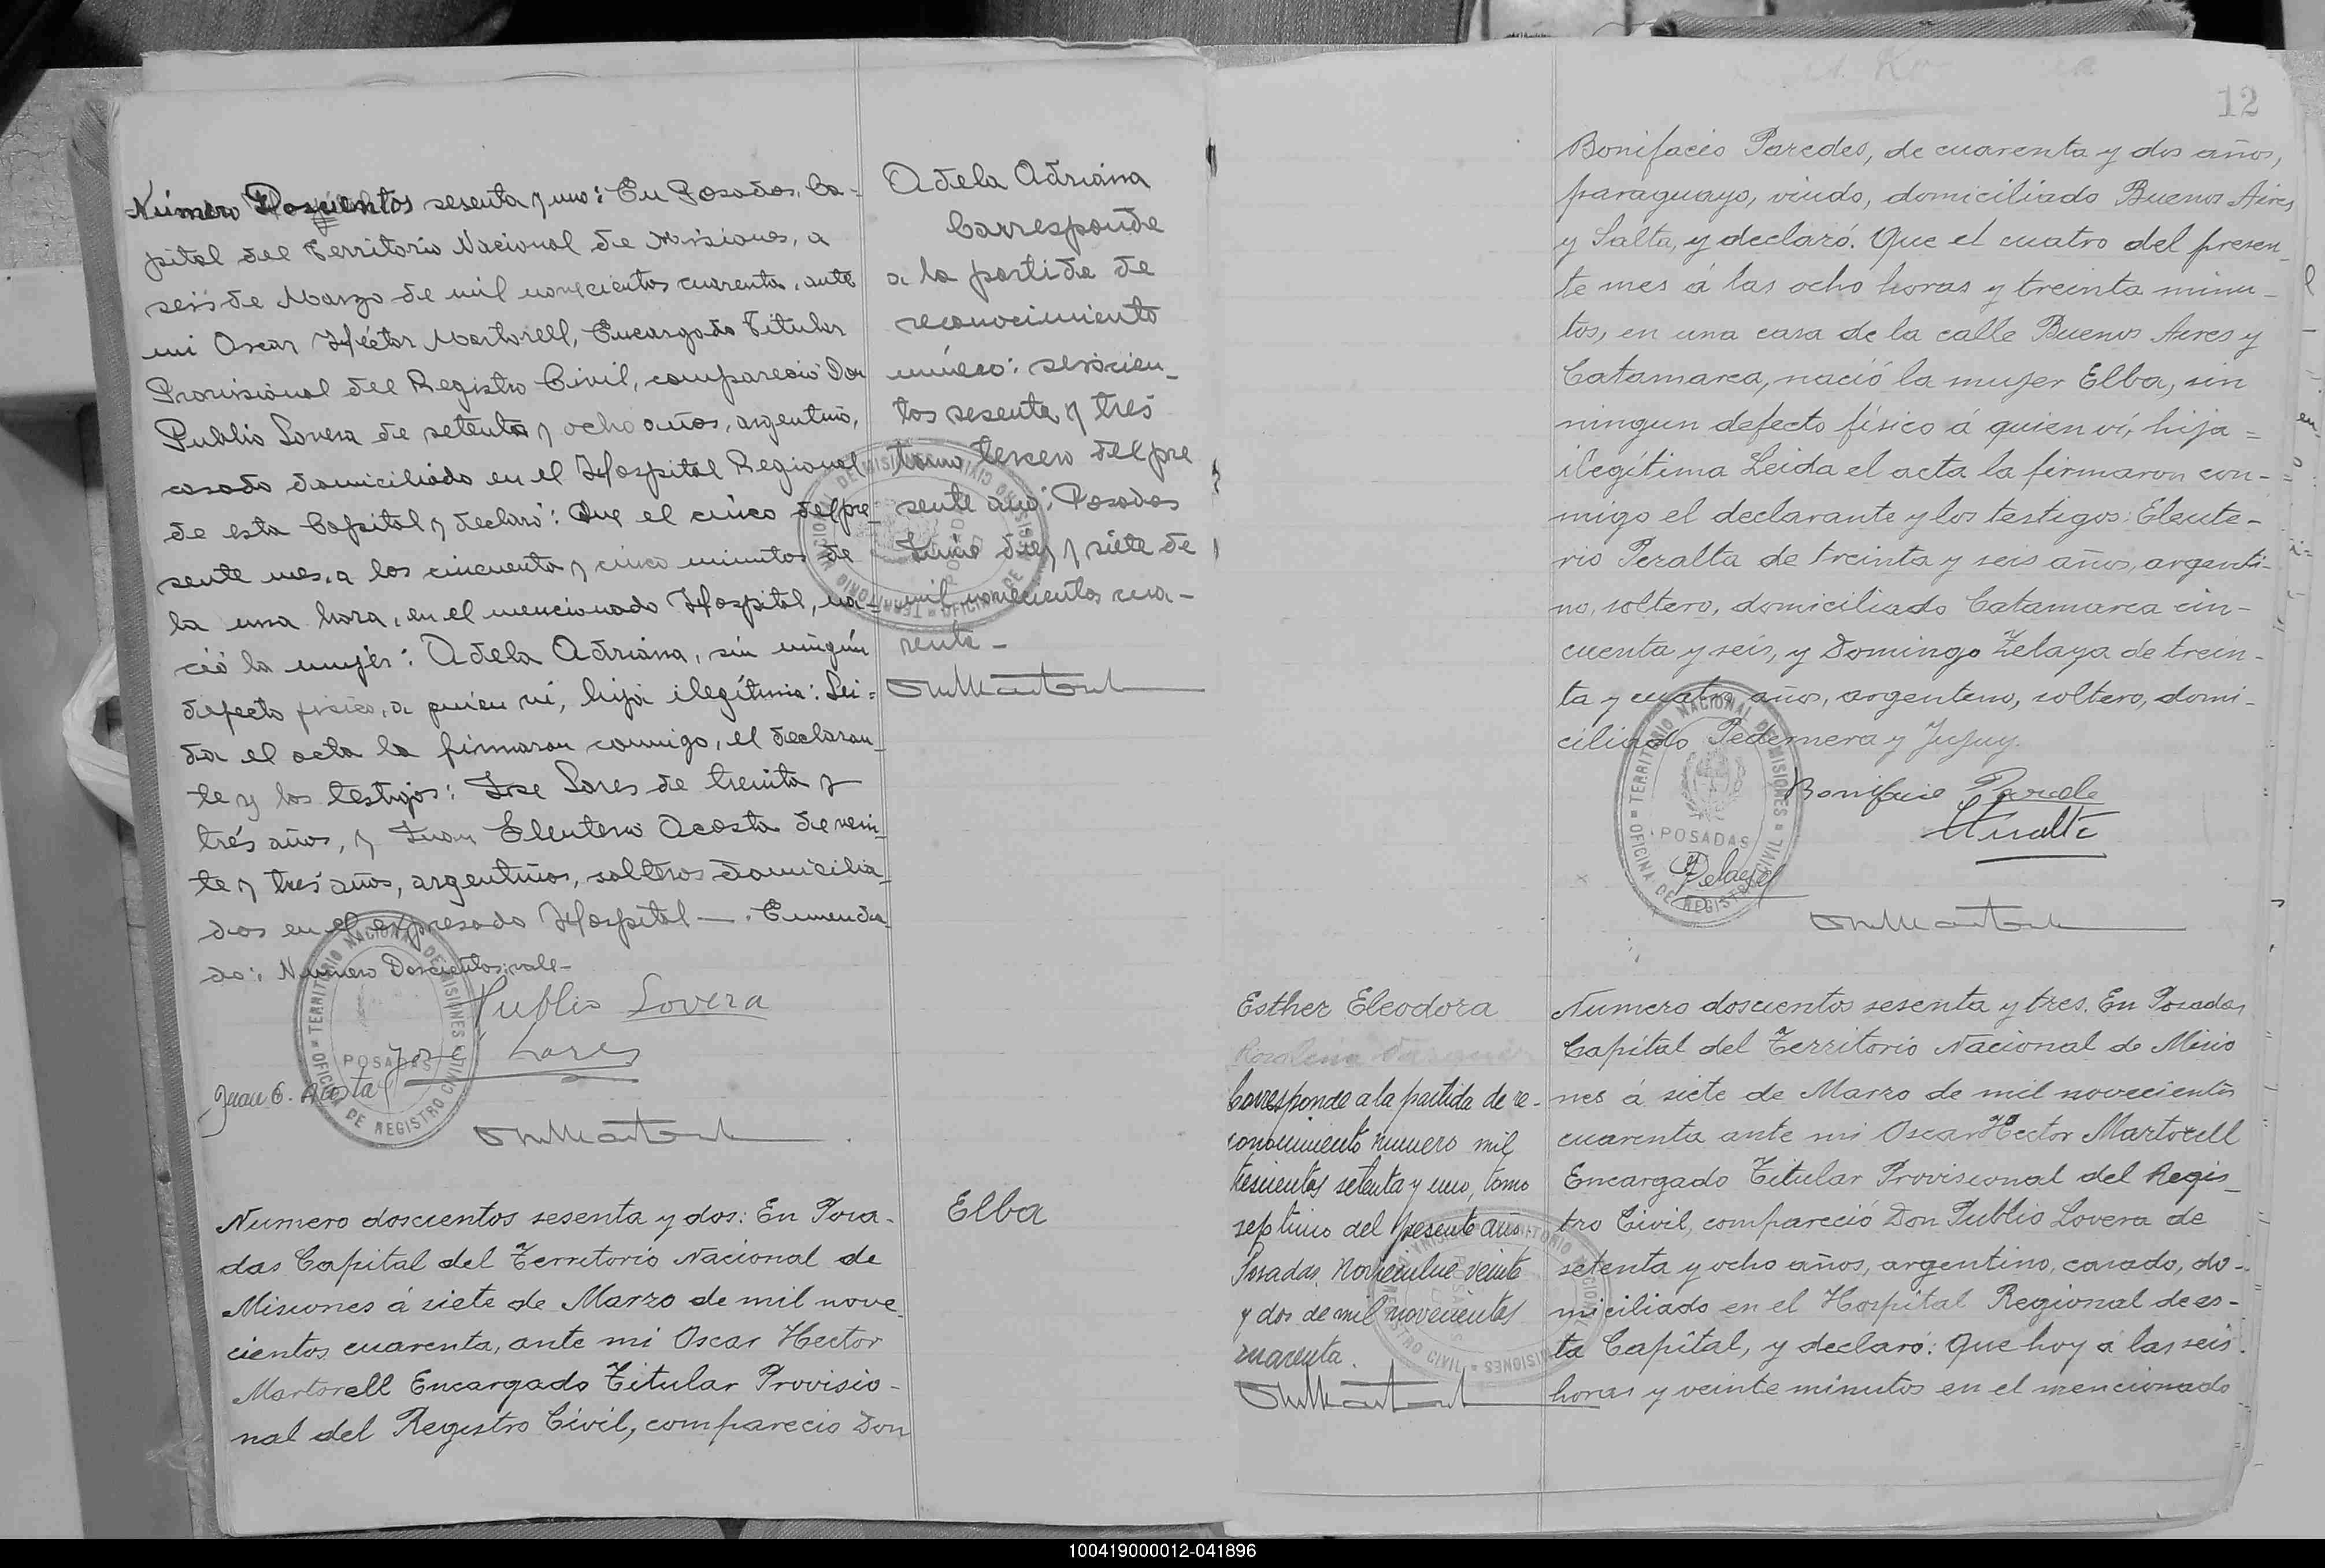 Número Doscientos sesenta y uno: En Posadas, Ca-
pital del Territorio Nacional de Misiones, a
seis de Marzo de mil novecientos cuarenta, ante
mi Oscar Héctor Martorell, Encargado Titular
Provisional del Registro Civil, compareció Don
Publio Lovera de setenta y ocho años, argentino,
casado domiciliado en el Hospital Regional
de esta Capital y declaró: Que el cinco del pre-
sente mes, a los cincuenta y cinco minutos de
la una hora, en el mencionado Hospital, na-
ció la mujer: Adela Adriana, sin ningún
defecto físico, a quien ví, hija ilegítima: Lei-
da el acta la firmaron conmigo, el declaran-
te y los testigos: José Lares de treinta y
trés años, y Juan Eleuterio Acosta de vein-
te y tres años, argentinos, solteros domicilia-
dos en el expresado Hospital —. Enmenda-
do: Numero Doscientos: vale-
Publio Lovera
José Lares
Juan E. Acosta
TERRITORIO NACIONAL DE MISIONES
OFICINA DE REGISTRO CIVIL
POSADAS
Adela Adriana
Corresponde
a la partida de
reconocimiento
número: seiscien-
tos sesenta y tres
tomo tercero del pre
sente año: Posadas
Junio diez y siete de
mil novecientos cua-
renta -
Numero doscientos sesenta y dos: En Posa-
das Capital del Territorio Nacional de
Misiones á siete de Marzo de mil nove-
cientos cuarenta, ante mi Oscar Hector
Martorell Encargado Titular Provisio-
nal del Registro Civil, comparecio Don
Elba
12
Bonifacio Paredes, de cuarenta y dos años,
paraguayo, viudo, domiciliado Buenos Aires
y Salta, y declaró: Que el cuatro del presen-
te mes á las ocho horas y treinta minu-
tos, en una casa de la calle Buenos Aires y
Catamarca, nació la mujer Elba, sin
ningun defecto físico á quien ví, hija =
ilegítima Leida el acta la firmaron con-
migo el declarante y los testigos: Eleute-
rio Peralta de treinta y seis años, argenti-
no, soltero, domiciliado Catamarca cin-
cuenta y seis, y Domingo Zelaya de trein-
ta y cuatro años, argentino, soltero, domi-
ciliado Pedernera y Jujuy.
Bonifacio Parede
TERRITORIO NACIONAL DE MISIONES
OFICINA DE REGISTRO CIVIL
POSADAS
Esther Eleodora
Corresponde a la partida de re-
conocimiento numero mil
trescientos setenta y uno, tomo
septimo del presente año
Posadas, Noviembre veinte
y dos de mil novecientos
cuarenta.
Numero doscientos sesenta y tres. En Posadas
Capital del Territorio Nacional de Misio
nes á siete de Marzo de mil novecientos
cuarenta ante mi Oscar Hector Martorell
Encargado Titular Provisional del Regis-
tro Civil, compareció Don Publio Lovera de
setenta y ocho años, argentino, casado, do-
miciliado en el Hospital Regional de es-
ta Capital, y declaró: Que hoy á las seis
horas y veinte minutos en el mencionado
100419000012-041896